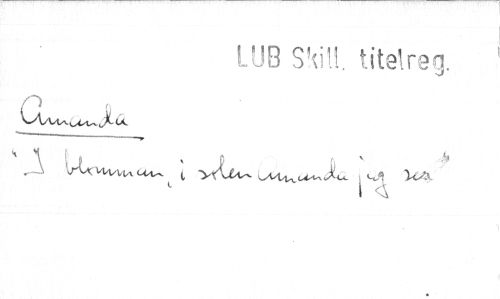 LUB Skill. titelreg.
Amanda
"I blomman, i solen Amanda jag ser"